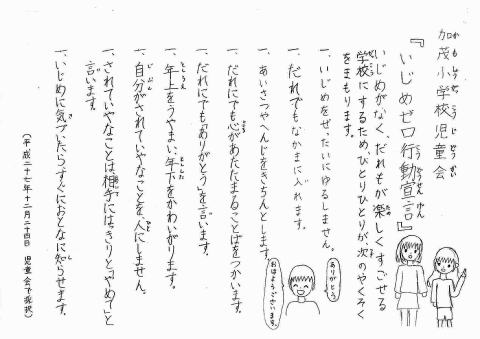 加茂小学校児童会
『いじめゼロ行動宣言』
いじめがなく、だれもが楽しくすごせる
学校にするため、ひとりひとりが、次のやくそく
をまもります。
一、いじめをぜったいにゆるしません。
一、だれでもなかまに入れます。
一、あいさつやへんじをきちんとします。
一、だれにでも心があたたまることばをつかいます。
一、だれにでも「ありがとう」を言います。
一、年上をうやまい、年下をかわいがります。
一、自分がされていやなことを、人にしません。
一、されていやなことは、相手にはっきりと「やめて」と
言います。
一、いじめに気づいたらすぐにおとなに知らせます。
(平成二十七年十二月二十四日 児童会で採択)
ありがとう
おはようございます